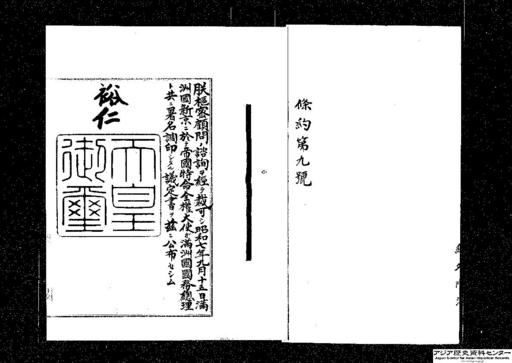 條約第九號
朕樞密顧問ノ諮詢ヲ經テ裁可シ昭和七年九月十五日滿
洲國新京ニ於テ帝國特命全權大使ガ滿洲國國務總理
ト共ニ署名調印シタル議定書ヲ茲ニ公布セシム
裕仁
天皇
御璽
アジア歴史資料センター
Japan Center for Asian Historical Records